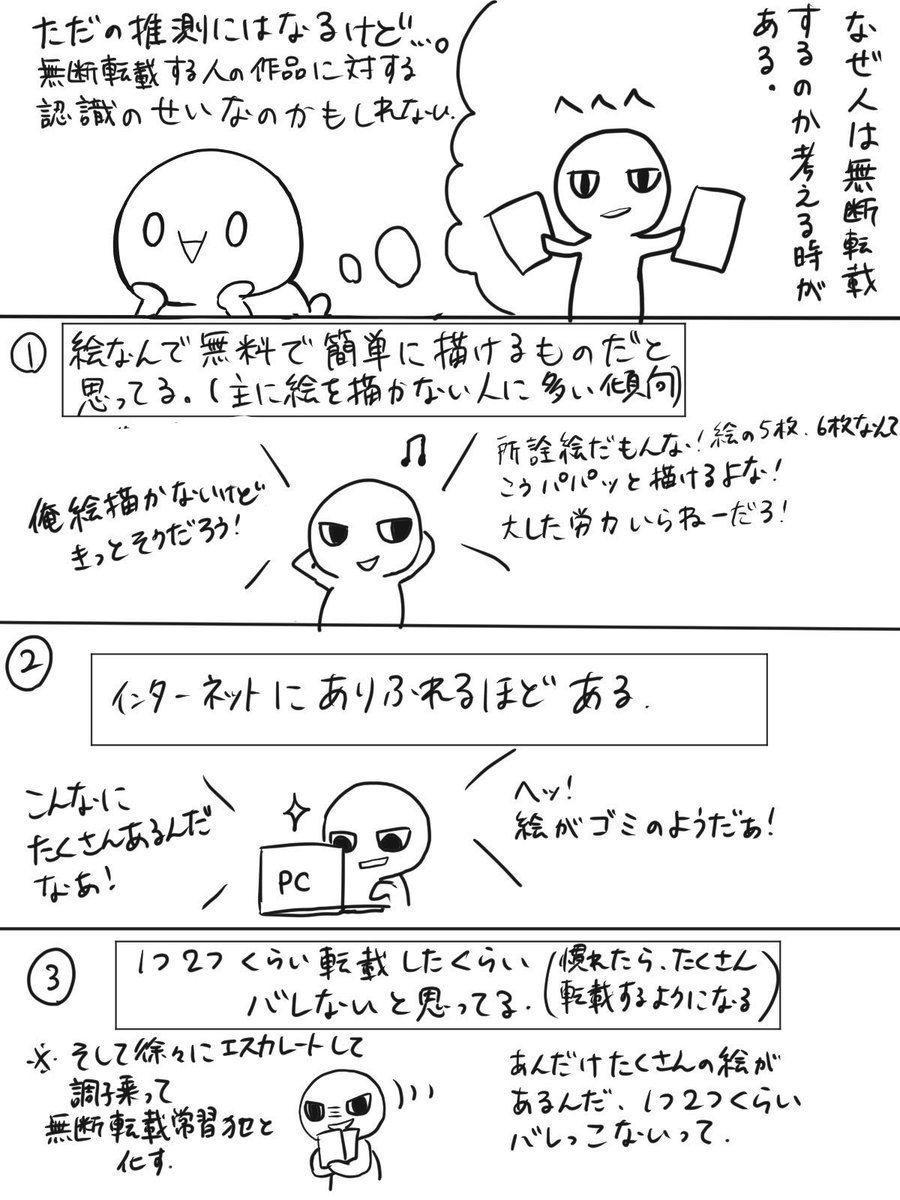 なぜ人は無断転載
するのか考える時が
ある.
へへへ
ただの推測にはなるけど…。
無断転載する人の作品に対する
認識のせいなのかもしれない.
①
絵なんで無料で簡単に描けるものだと
思ってる.(主に絵を描かない人に多い傾向)
俺絵描かないけど
きっとそうだろう!
所詮絵だもんな!絵の5枚、6枚なんて
こうパパッと描けるよな!
大した労力いらねーだろ!
②
インターネットにありふれるほどある.
こんなに
たくさんあるんだ
なあ!
PC
ヘッ!
絵がゴミのようだぁ!
③
1つ2つくらい転載したくらい
バレないと思ってる.
(慣れたら、たくさん
転載するようになる)
※そして徐々にエスカレートして
調子乗って
無断転載常習犯と
化す.
あんだけたくさんの絵が
あるんだ、1つ2つくらい
バレっこないって.